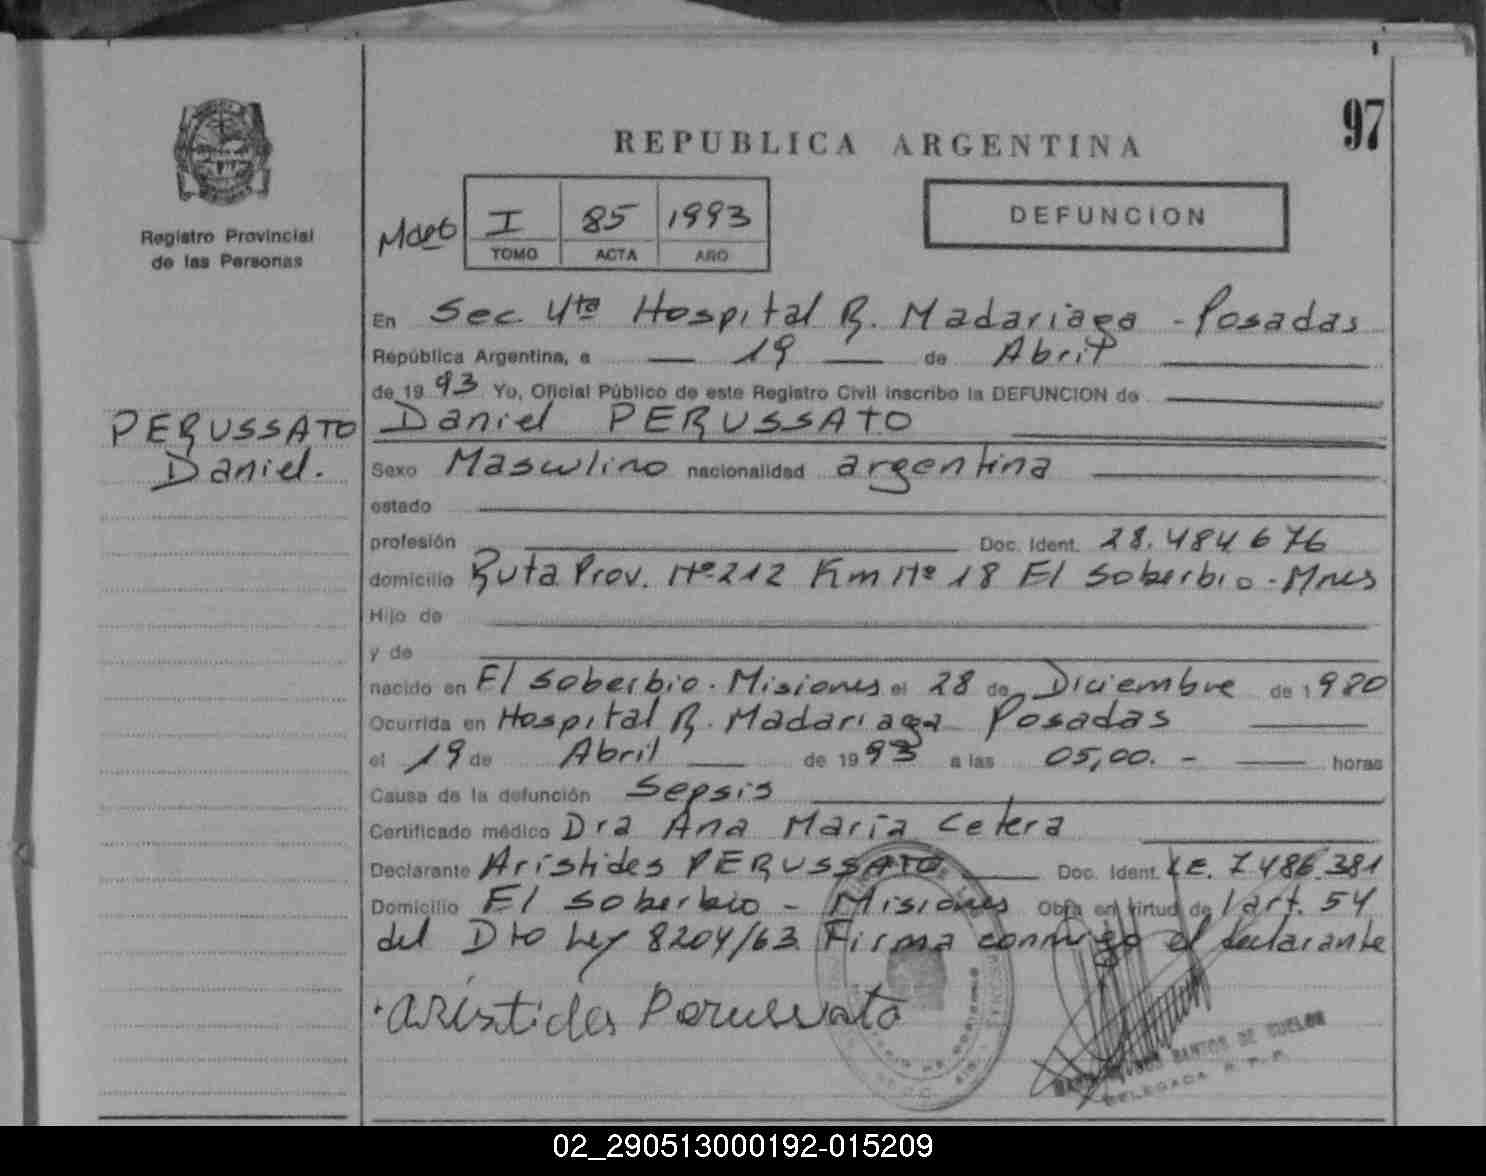 97
REPUBLICA ARGENTINA
DEFUNCION
I 85 1993
TOMO ACTA AÑO
Registro Provincial
de las Personas
En Sec. 4ta Hospital R. Madariaga - Posadas
República Argentina, a 19 de Abril
de 1993 Yo, Oficial Público de este Registro Civil inscribo la DEFUNCION de
PERUSSATO
Daniel.
Daniel PERUSSATO
Sexo Masculino nacionalidad argentina
estado
profesión Doc. Ident. 28.484676
domicilio Ruta Prov. Nº 212 Km Nº 18 El Soberbio - Mnes
Hijo de
y de
nacido en El Soberbio. Misiones el 28 de Diciembre de 1980
Ocurrida en Hospital R. Madariaga Posadas
el 19 de Abril de 1993 a las 05,00. - horas
Causa de la defunción Sepsis
Certificado médico Dra Ana María Cetera
Declarante Arístides PERUSSATO Doc. Ident. LE. 7486.381
Domicilio El Soberbio - Misiones Obra en virtud de l art. 54
del Dto Ley 8204/63 Firma conmigo el declarante
Arístides Perussato
SANTOS DE
DELEGADA R. P. P.
02_290513000192-015209